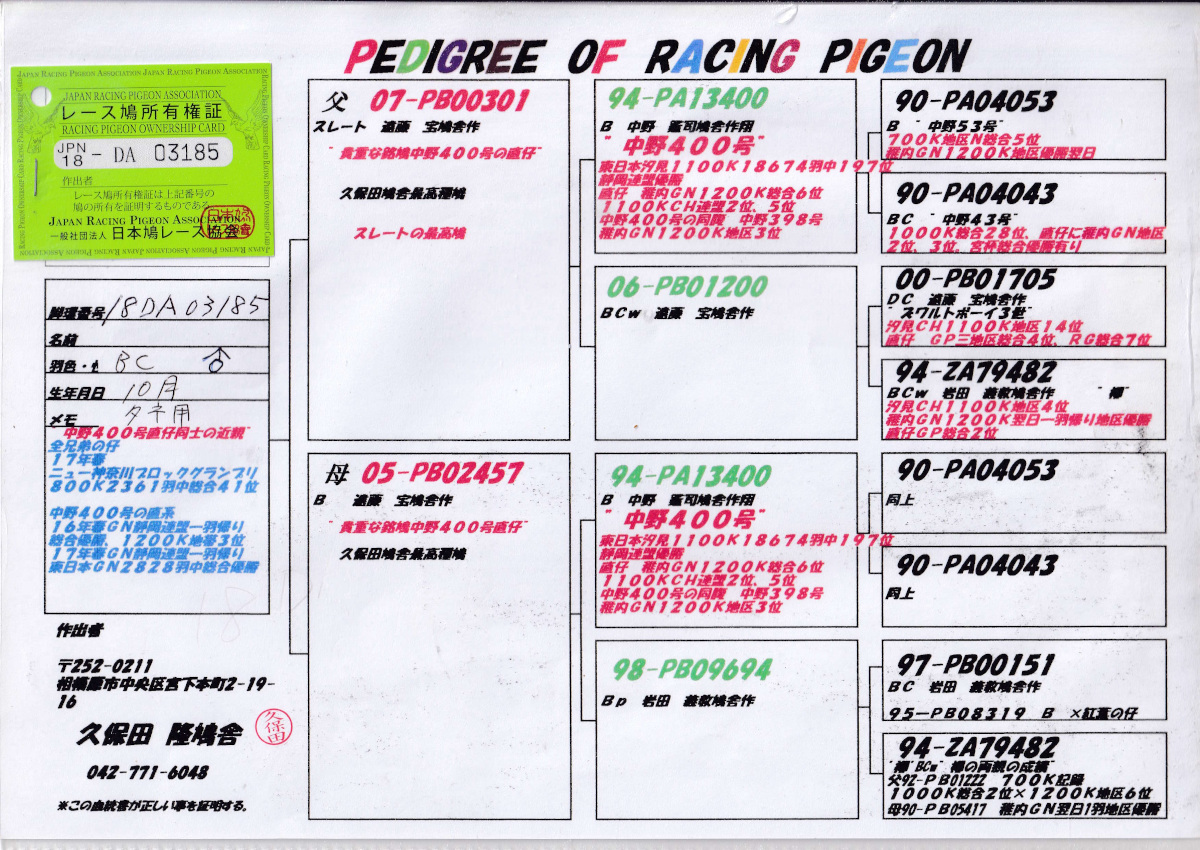 PEDIGREE OF RACING PIGEON
JAPAN RACING PIGEON ASSOCIATION
レース鳩所有権証
RACING PIGEON OWNERSHIP CARD
JPN 18 - DA 03185
作出者
レース鳩所有権証は上記番号の
鳩の所有を証明するものである
JAPAN RACING PIGEON ASSOCIATION
一般社団法人 日本鳩レース協会
脚環番号 18DA03185
名前
羽色・♂ BC ♂
生年月日 10月
メモ タネ用
"中野400号直仔同士の近親"
全兄弟の仔
17年春
ニュー神奈川ブロックグランプリ
800K2361羽中総合41位
中野400号の直系
16年春GN静岡連盟一羽帰り
総合優勝、1200K地帯3位
17年春GN静岡連盟一羽帰り
東日本GN2828羽中総合優勝
作出者
〒252-0211
相模原市中央区宮下本町2-19-
16
久保田 隆鳩舎
久保田
042-771-6048
※この血統書が正しい事を証明する。
父 07-PB00301
スレート 遠藤 宝鳩舎作
"貴重な銘鳩中野400号の直仔"
久保田鳩舎最高種鳩
スレートの最高鳩
母 05-PB02457
B 遠藤 宝鳩舎作
"貴重な銘鳩中野400号直仔"
久保田鳩舎最高種鳩
94-PA13400
B 中野 鑑司鳩舎作翔
"中野400号"
東日本汐見1100K18674羽中197位
静岡連盟優勝
直仔 稚内GN1200K総合6位
1100KCH連盟2位、5位
中野400号の同腹 中野398号
稚内GN1200K地区3位
06-PB01200
BCw 遠藤 宝鳩舎作
94-PA13400
B 中野 鑑司鳩舎作翔
"中野400号"
東日本汐見1100K18674羽中197位
静岡連盟優勝
直仔 稚内GN1200K総合6位
1100KCH連盟2位、5位
中野400号の同腹 中野398号
稚内GN1200K地区3位
98-PB09694
Bp 岩田 兼敏鳩舎作
90-PA04053
B "中野53号"
700K地区N総合5位
稚内GN1200K地区優勝翌日
90-PA04043
BC "中野43号"
1000K総合28位、直仔に稚内GN地区
2位、3位。宮杯総合優勝有り
00-PB01705
DC 遠藤 宝鳩舎作
"ズワルトボーイ3世"
汐見CH1100K地区14位
直仔 GP三地区総合4位、RG総合7位
94-ZA79482
BCw 岩田 兼敏鳩舎作
汐見CH1100K地区4位
稚内GN1200K翌日一羽帰り地区優勝
直仔GP総合2位
90-PA04053
同上
90-PA04043
同上
97-PB00151
BC 岩田 兼敏鳩舎作
95-PB08319 B ×紅葉の仔
94-ZA79482
の両親の成績
父92-PB01222 700K記録
1000K総合2位×1200K地区6位
母90-PB05417 稚内GN翌日1羽地区優勝